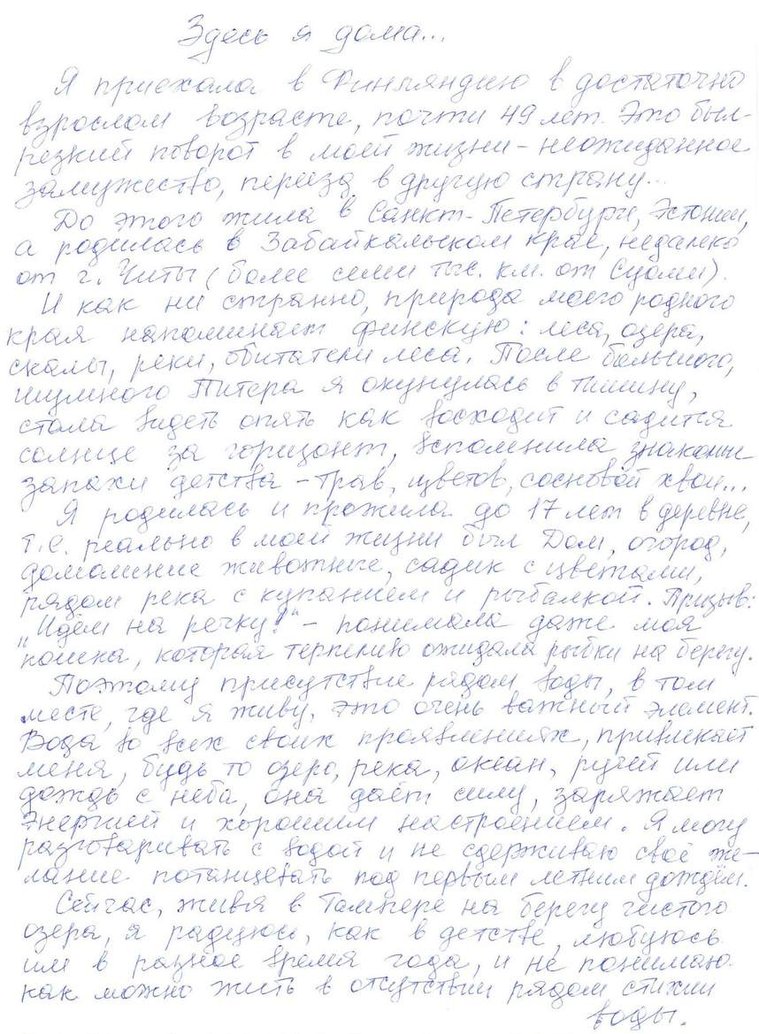 Здесь я дома...
Я приехала в Финляндию в достаточно
взрослом возрасте, почти 49 лет. Это был-
резкий поворот в моей жизни - неожиданное
замужество, переезд в другую страну...
До этого жила в Санкт-Петербурге, Эстонии,
а родилась в Забайкальском крае, недалеко
от г. Читы (более семи тыс. км. от Суоми).
И как ни странно, природа моего родного
края напоминает финскую: леса, озера,
скалы, реки, обитатели леса. После большого,
шумного Питера я окунулась в тишину,
стала видеть опять как восходит и садится
солнце за горизонт, вспомнила знакомые
запахи детства - трав, цветов, сосновой хвои...
Я родилась и прожила до 17 лет в деревне,
т.е. реально в моей жизни был Дом, огород,
домашние животные, садик с цветами,
рядом река с купанием и рыбалкой. Призыв:
„Идём на речку!“ - понимала даже моя
кошка, которая терпеливо ожидала рыбки на берегу.
Поэтому присутствие рядом воды, в том
месте, где я живу, это очень важный элемент.
Вода во всех своих проявлениях, привлекает
меня, будь то озеро, река, океан, ручей или
дождь с неба, она даёт силу, заряжает
энергией и хорошим настроением. Я могу
разговаривать с водой и не сдерживаю своё же-
лание потанцевать под первым летним дождём.
Сейчас, живя в Тампере на берегу чистого
озера, я радуюсь, как в детстве, любуюсь
им в разное время года, и не понимаю
как можно жить в отсутствии рядом стихии
воды.